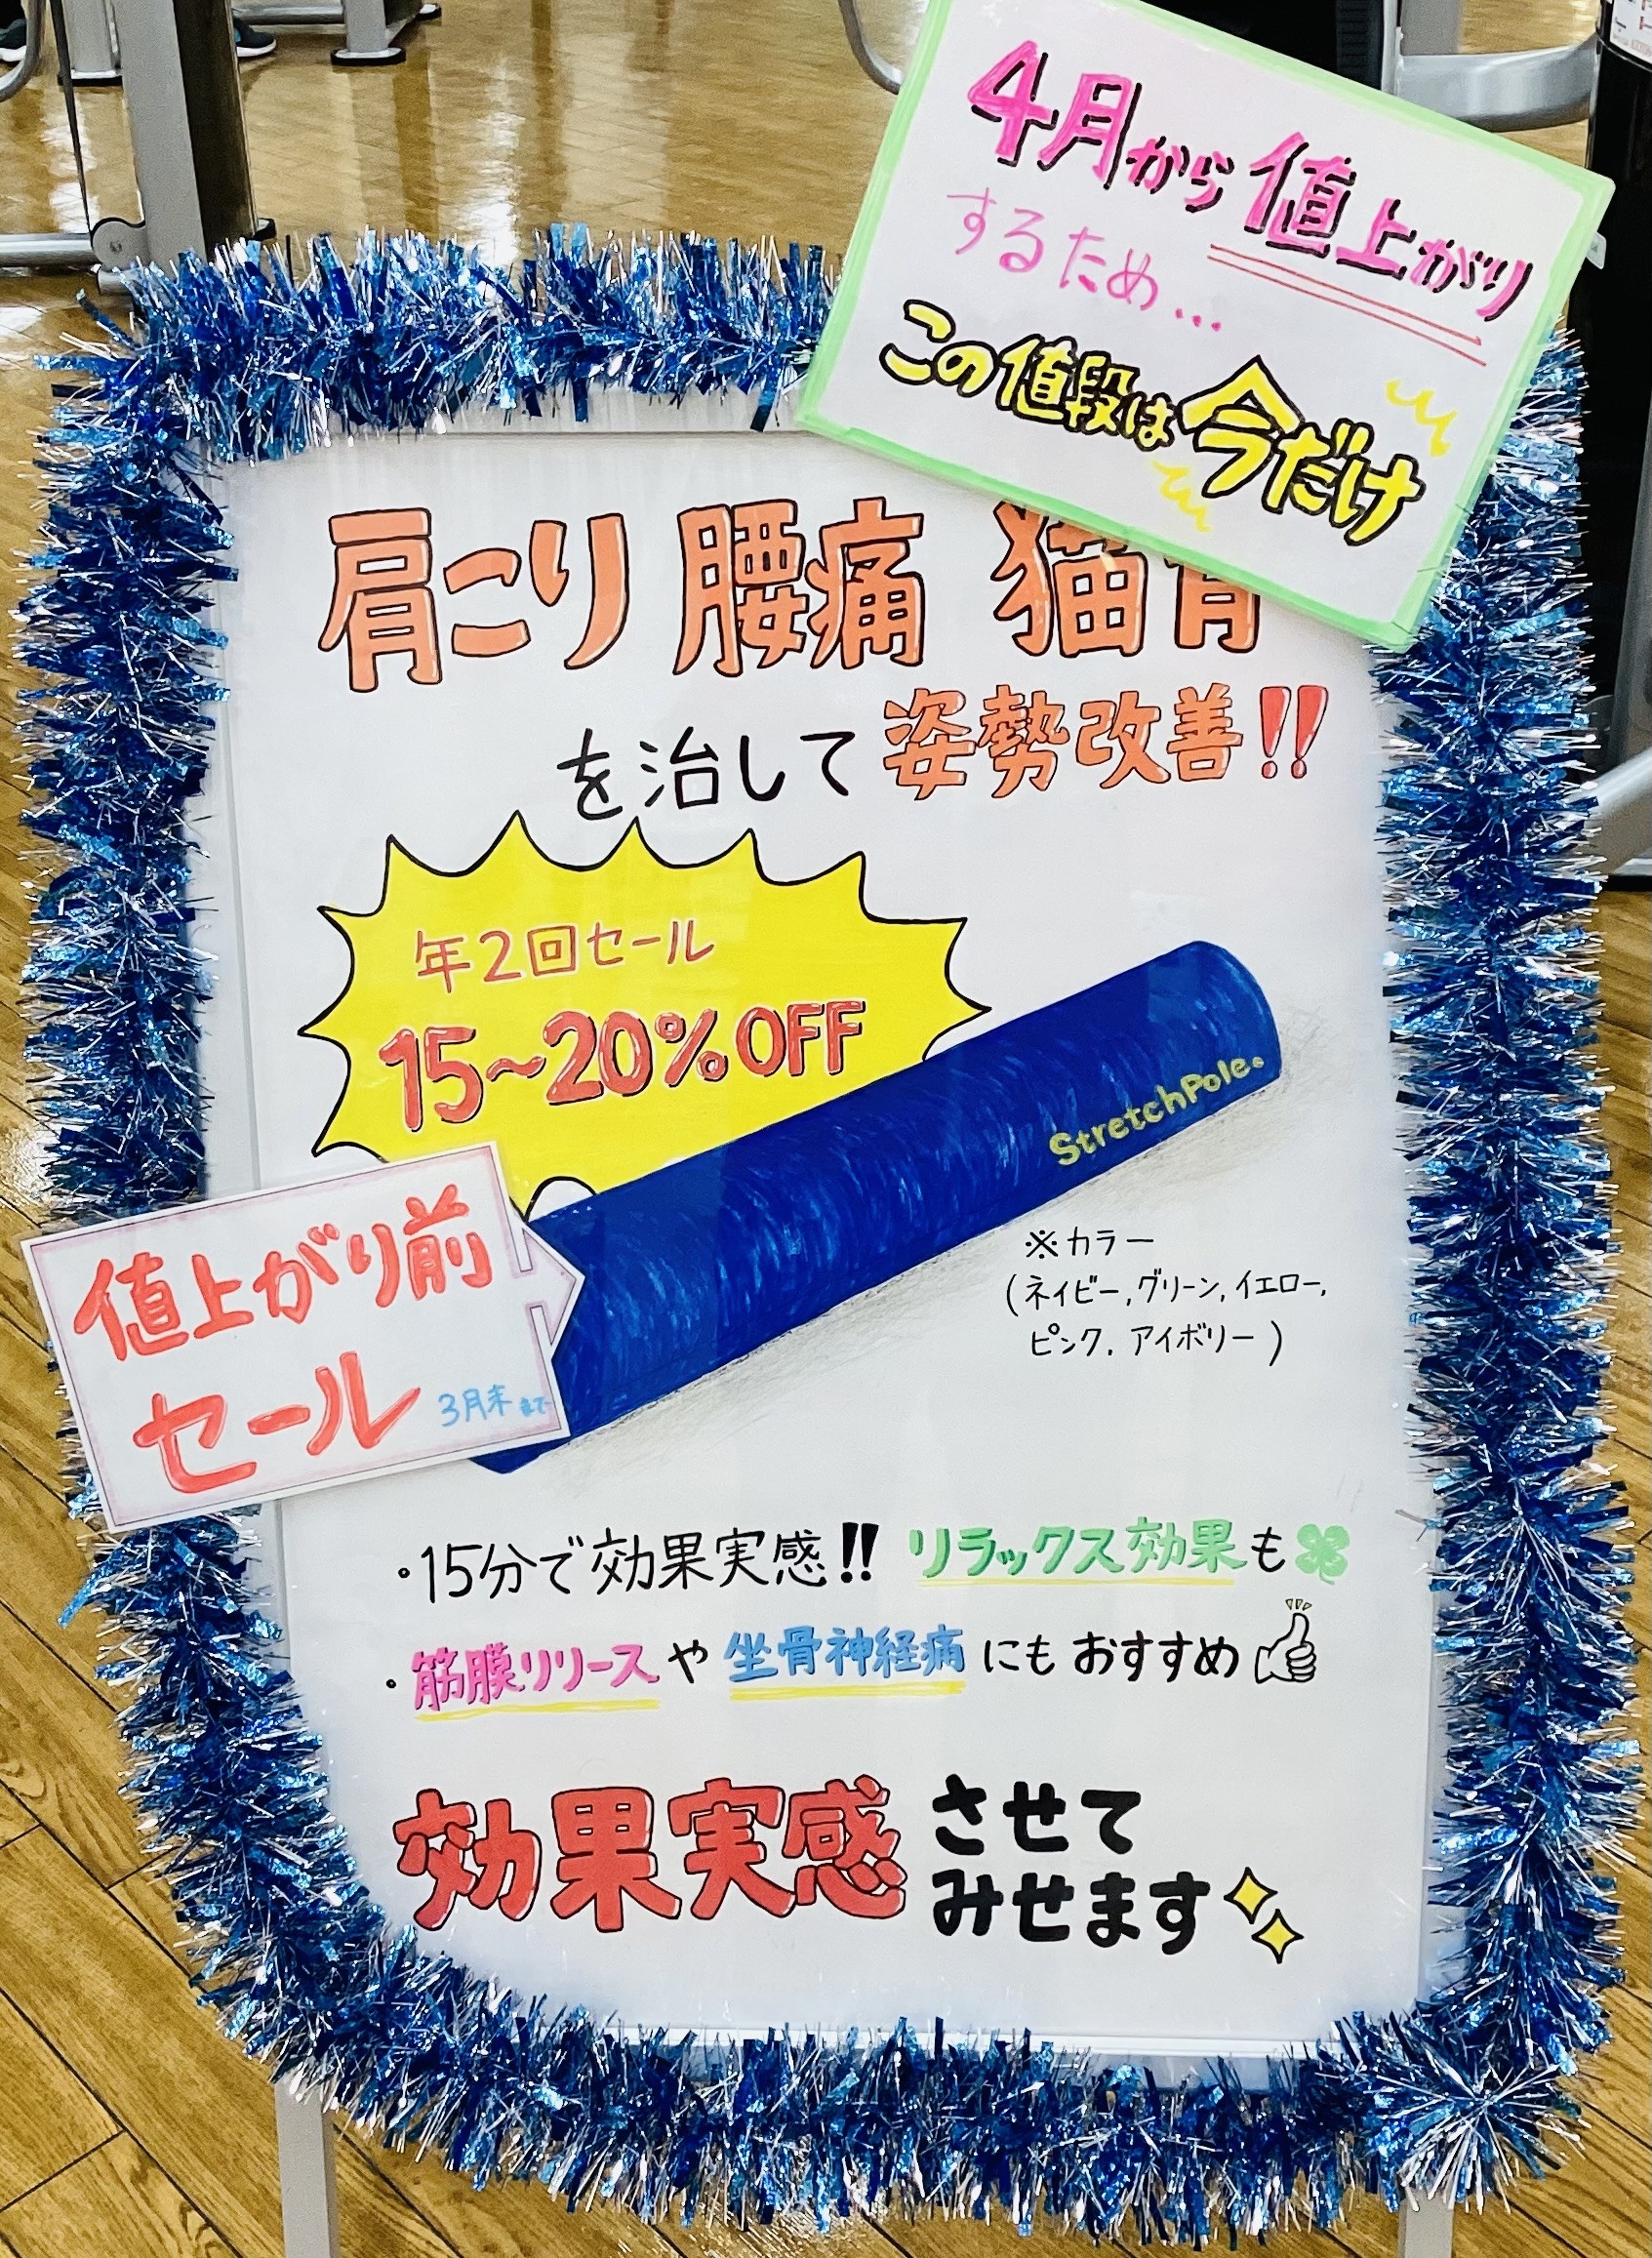 4月から値上がり
するため...
この値段は今だけ
肩こり 腰痛 猫背
を治して姿勢改善!!
年2回セール
15~20%OFF
StretchPole®
値上がり前
セール 3月末まで
※カラー
(ネイビー,グリーン,イエロー,
ピンク,アイボリー)
・15分で効果実感!! リラックス効果も
・筋膜リリースや坐骨神経痛にもおすすめ
効果実感させて
みせます